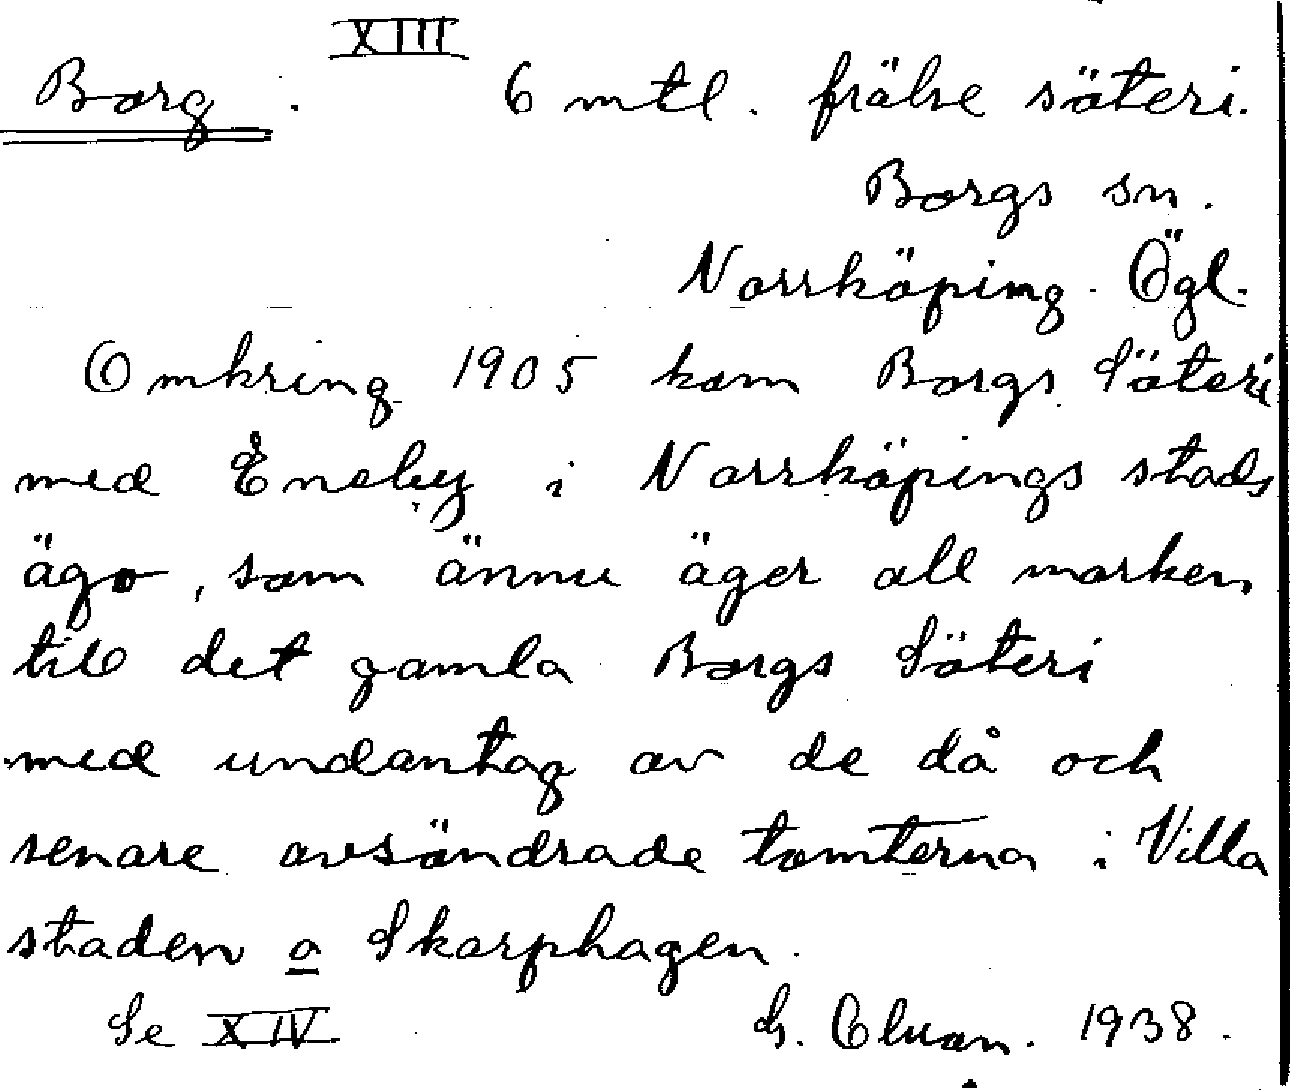 XIII
Borg. 6 mtl. frälse säteri.
Borgs sn.
Norrköping. Ögl.
Omkring 1905 kom Borgs Säteri
med Eneby i Norrköpings stads
ägo, som ännu äger all marken
till det gamla Borgs Säteri
med undantag av de då och
senare avsöndrade tomterna i Villa
staden o Skarphagen.
Se XIV 1938.